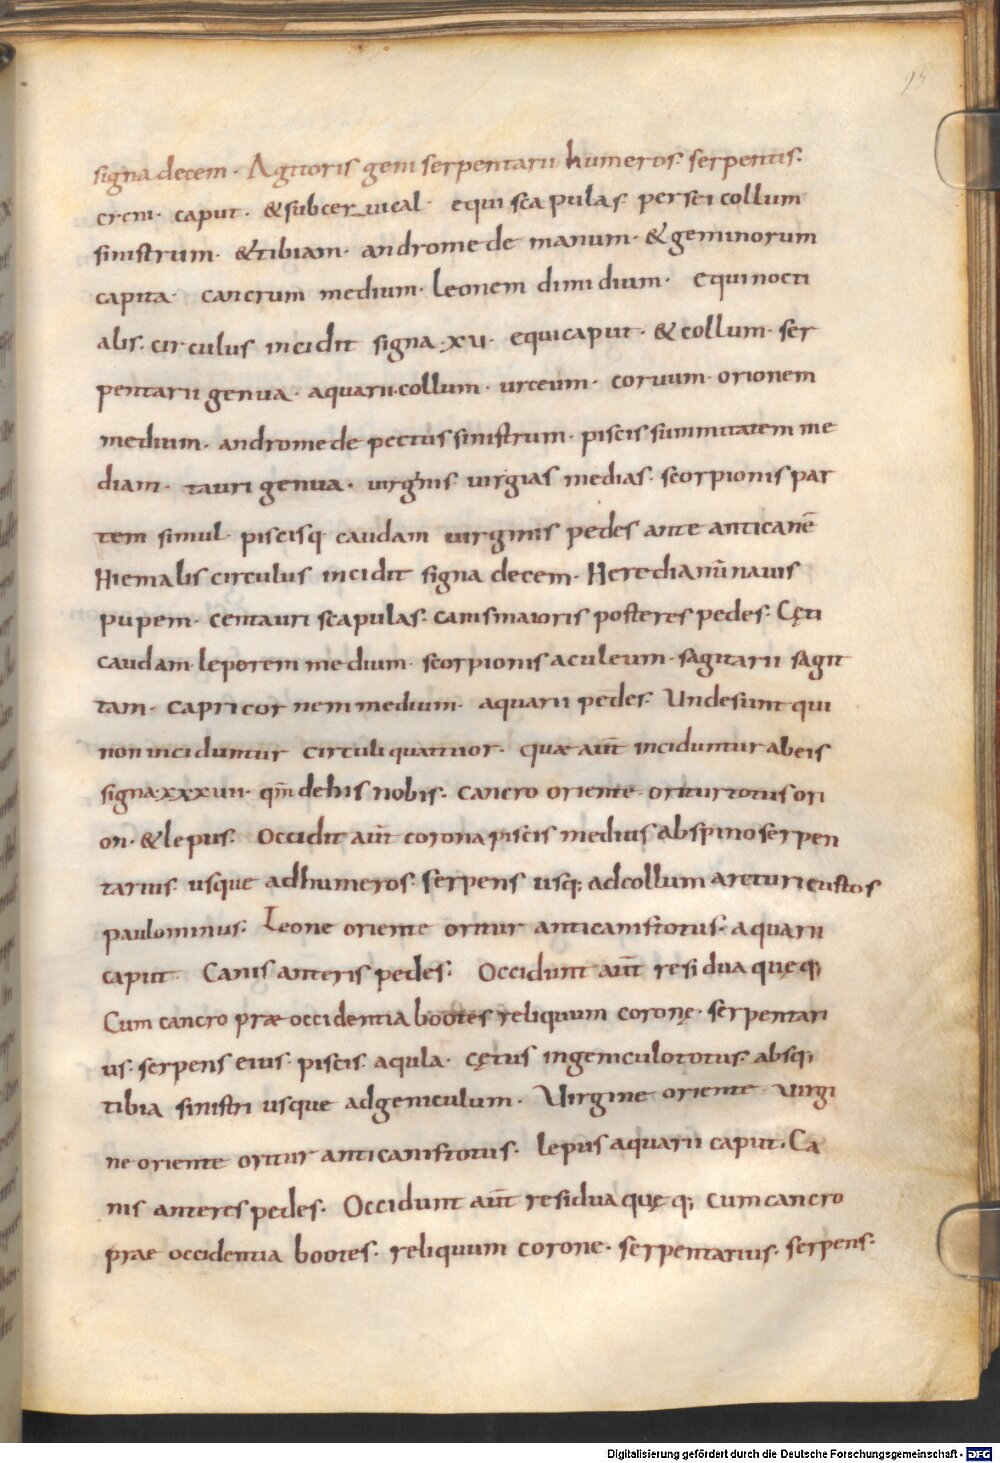 95
signa decem· Agitoris geni serpentarii humeros· serpentis·
creni· caput· & subcer_uical· equi scapulas persei collum
sinistrum· & tibiam· andromede manum· & geminorum
capita· cancrum medium· leonem dimidium· equinocti
alis· circulus incidit signa·xu· equi caput· & collum· ser
pentarii genua· aquarii·collum· urceum· coruum· orionem
medium· andromede pectus sinistrum· piscis summitatem me
diam· tauri genua· uirginis uirgias medias· scorpionis par
tem simul· piscisq caudam uirginis pedes ante anticanē
Hiemalis circulus incidit signa decem· Heredianū nauis
pupem· centauri scapulas· canis maioris posteres pedes· Cęti
caudam·leporem medium· scorpionis aculeum· sagitarii sagit
tam· capricornem medium· aquarii pedes· Unde sunt qui
non inciduntur circuli quattuor· quae aūt inciduntur ab eis
signa·xxxuii· qm̄ de his nobis· cancro oriente· oritur totus ori
on· & lepus· Occidit aūt corona piscis medius ab spino serpen
tarius· usque ad humeros· serpens usq; ad collum arcturi custos
paulominus· Leone oriente oritur anticanis totus· aquarii
caput· Canis anteris pedes· Occidunt aūt residua quęq;
Cum cancro prae occidentia bootes reliquum coronę· serpentari
us· serpens eius· piscis· aqula· cętus ingeniculo totus· absq;
tibia sinistri usque ad geniculum· Uirgine oriente uirgi
ne oriente oritur anticanis totus· lepus aquarii caput· Ca
nis anteres pedes· Occidunt aūt residua quęq; cum cancro
prae occidentia bootes· reliquum corone· serpentarius· serpens·
Digitalisierung gefördert durch die Deutsche Forschungsgemeinschaft - DFG